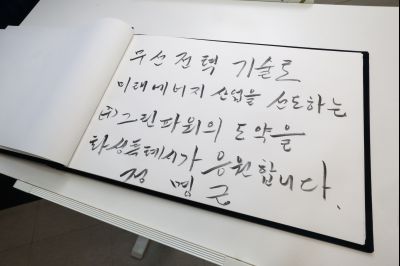 무선전력 기술로
미래에너지 산업을 선도하는
(주)그린파워의 도약을
화성특례시가 응원합니다.
정 명 근